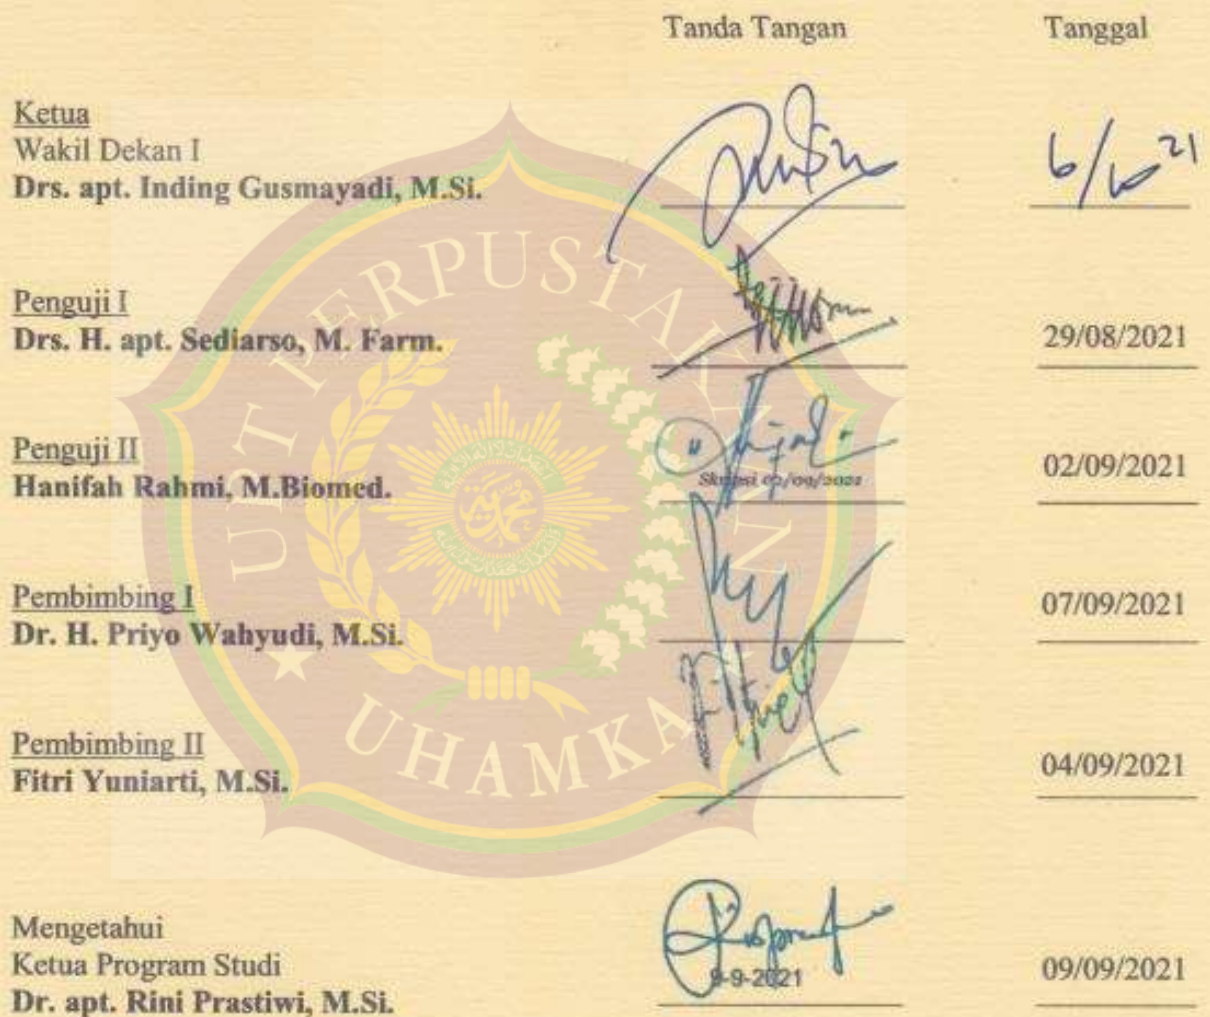 Tanda Tangan Tanggal
Ketua
Wakil Dekan I
Drs. apt. Inding Gusmayadi, M.Si. 6/10 21
Penguji I
Drs. H. apt. Sediarso, M. Farm. 29/08/2021
Penguji II
Hanifah Rahmi, M.Biomed. 02/09/2021
Skripsi 02/09/2021
Pembimbing I
Dr. H. Priyo Wahyudi, M.Si. 07/09/2021
Pembimbing II
Fitri Yuniarti, M.Si. 04/09/2021
Mengetahui
Ketua Program Studi
Dr. apt. Rini Prastiwi, M.Si. 09/09/2021
9-9-2021
UPT PERPUSTAKAAN
UHAMKA